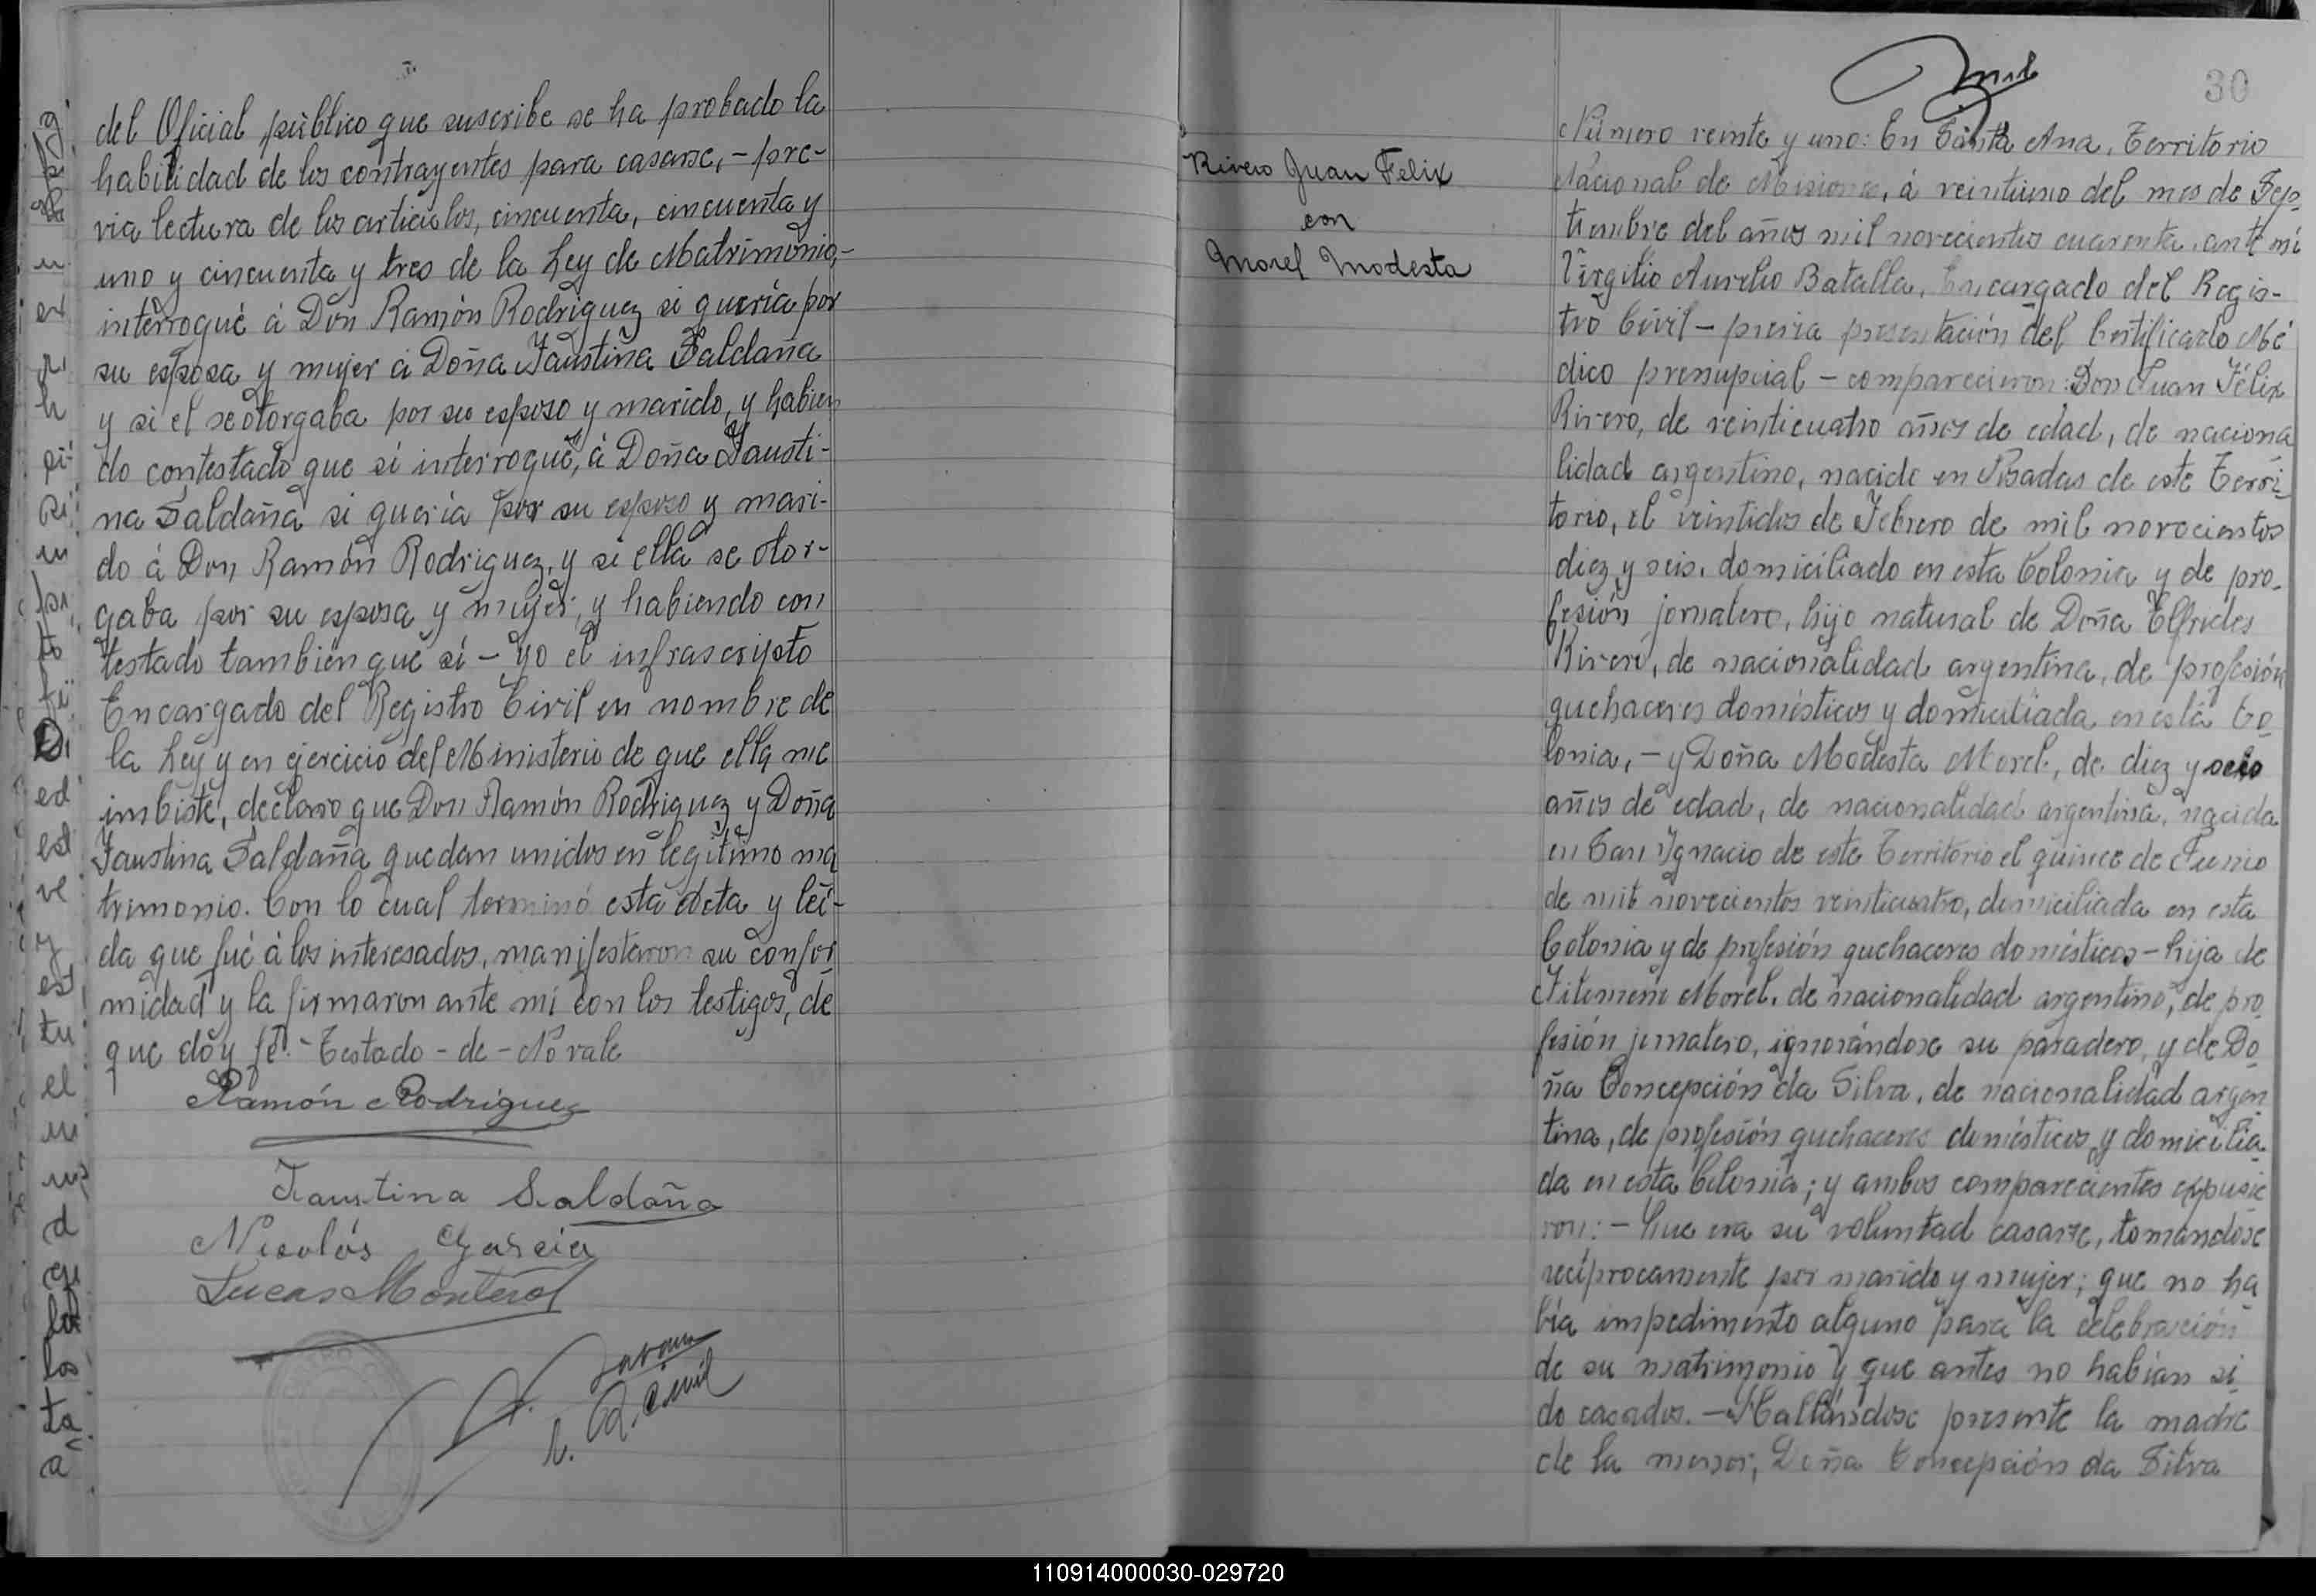 del Oficial público que suscribe se ha probado la
habilidad de los contrayentes para casarse, - pre-
via lectura de los articulos, cincuenta, cincuenta y
uno y cincuenta y tres de la Ley de Matrimonio,-
interrogué á Don Ramón Rodriguez si quería por
su esposa y mujer á Doña Faustina Saldaña
y si el se otorgaba por su esposo y marido, y habien
do contestado que si interrogué, á Doña Fausti-
na Saldaña si quería por su esposo y mari-
do á Don Ramón Rodriguez, y si ella se otor-
gaba por su esposa y mujer, y habiendo con
testado tambien que sí - yo el infrascripto
Encargado del Registro Civil en nombre de
la Ley y en ejercicio del Ministerio de que ella me
imbiste, declaro que Don Ramón Rodriguez y Doña
Faustina Saldaña quedan unidos en legitimo ma
trimonio. Con lo cual terminó esta acta y leí-
da que fué á los interesados, manifestaron su confor
midad y la firmaron ante mí con los testigos, de
que doy fé. - Testado - de - No vale
Ramón Rodriguez
Faustina Saldaña
Nicolás Garcia
Lucas Montero
30
Rivero Juan Felix
con
Morel Modesta
Número veinte y uno: En Santa Ana, Territorio
Nacional de Misiones, á veintiuno del mes de Sep-
tiembre del años mil novecientos cuarenta, ante mí
Virgilio Aurelio Batalla, Encargado del Regis-
tro Civil - previa presentación del Certificado Mé
dico prenupcial - comparecieron: Don Juan Félix
Rivero, de veinticuatro años de edad, de naciona
lidad argentino, nacido en Posadas de este Terri
torio, el veintidos de Febrero de mil novecientos
diez y seis, domiciliado en esta Colonia y de pro-
fesión jornalero, hijo natural de Doña Elfrides
Rivero, de nacionalidad argentina, de profesión
quehaceres domésticos y domiciliada en esta Co
lonia, - y Doña Modesta Morel, de diez y seis
años de edad, de nacionalidad argentina, nacida
en San Ignacio de este Territorio el quince de Junio
de mil novecientos veinticuatro, domiciliada en esta
Colonia y de profesión quehaceres domésticos - hija de
Filomeno Morel, de nacionalidad argentino, de pro
fesión jornalero, ignorándose su paradero, y de Do
ña Concepción da Silva, de nacionalidad argen
tina, de profesión quehaceres domésticos y domicilia
da en esta Colonia; y ambos comparecientes expusie
ron: - Que era su voluntad casarse, tomandose
reciprocamente por marido y mujer; que no ha
bía impedimento alguno para la celebración
de su matrimonio y que antes no habían si
do casados. - Hallandose presente la madre
de la menor, Doña Concepción da Silva
110914000030-029720